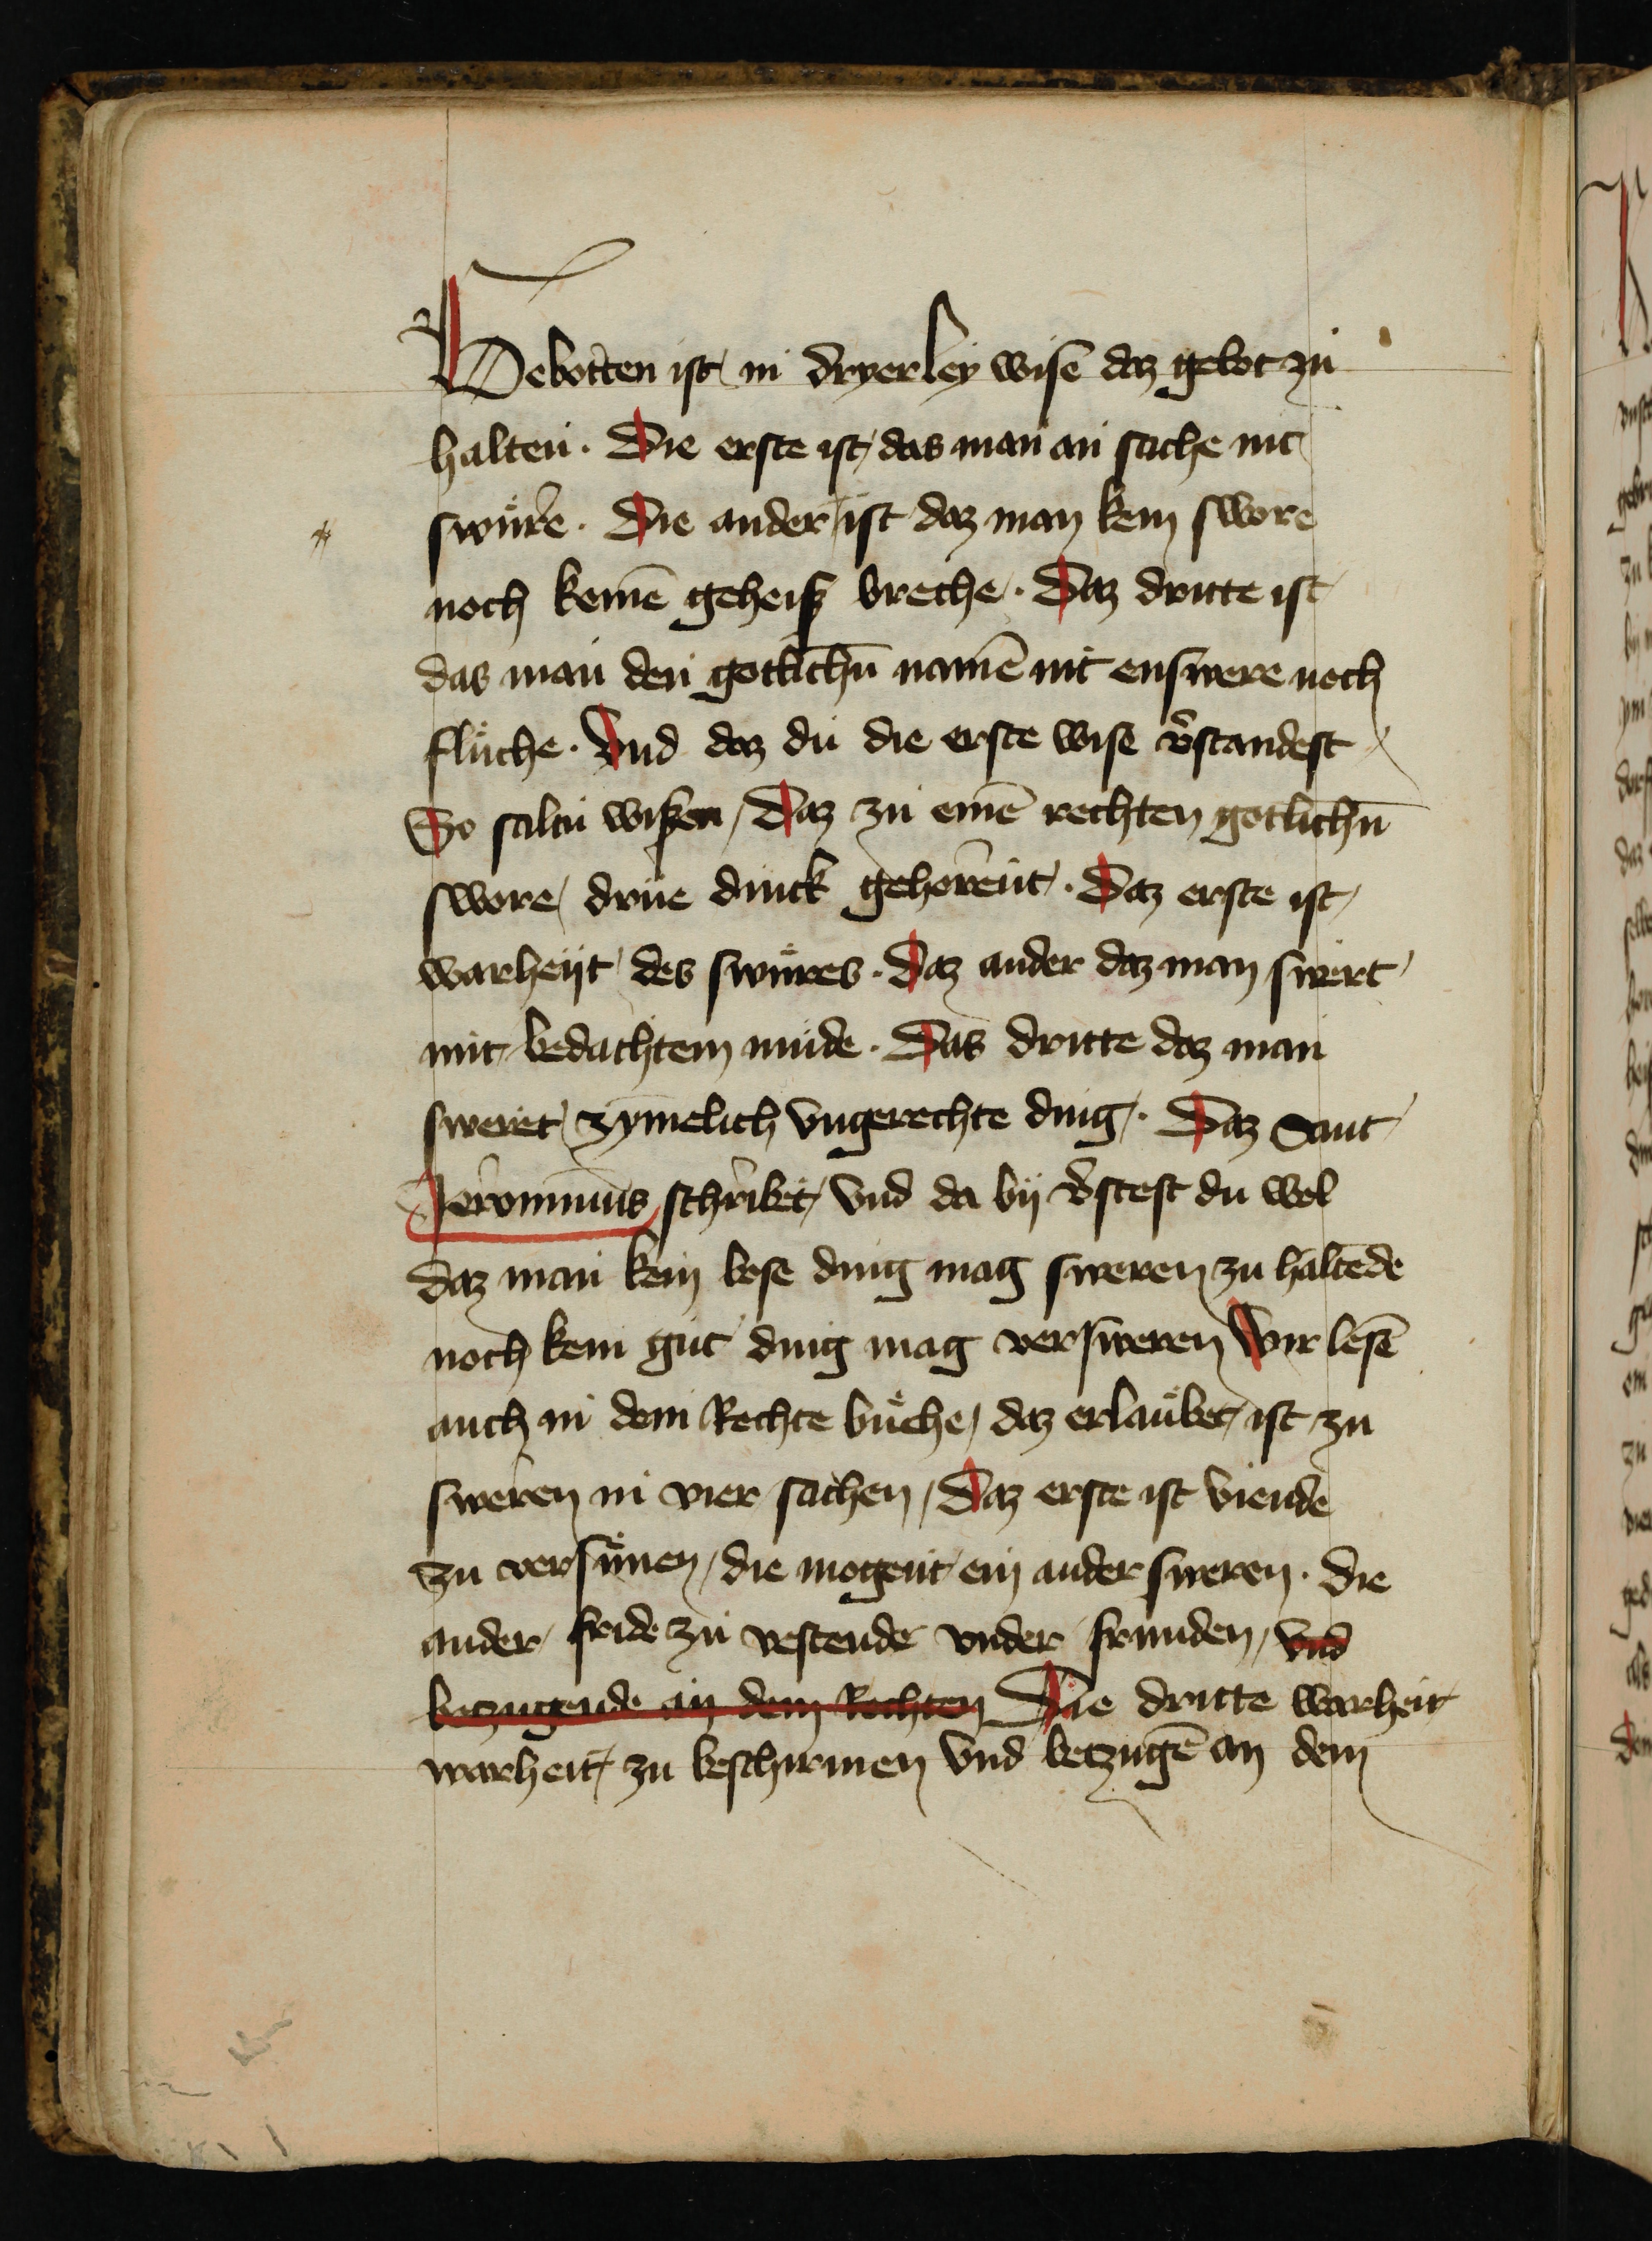 Gebotten ist in dryerley wise daz gebot zu
halten. Die erste ist das man an sache nit
swüre. Die ander ist daz man kein swore
noch keinē geheiß breche. Daz dritte ist
das man den gotlichn̄ namē nit enswere noch
flůche. Vnd daz du die erste wise v̄standest
So saltu wißen, Daz zu einē rechten gotlichn̄
swore drüe dinck gehorent. Daz erste ist
warheijt des swüres. Daz ander daz man swert
mit bedachtem mude. Das dritte daz man
sweret zymelich vngerechte ding. Daz Sant
Jeronimus schribet, Vnd da bij v̄stest du wol
daz man kein bose ding mag sweren zu haltēde
noch kein gut ding mag versweren Wir lesē
auch in dem Rechte bůche, daz erlaůbet ist zu
sweren in vier sachen, Daz erste ist viende
zu versünen, die mogent ein ander sweren. die
ander fride zu vestende vnder frunden, vnd
betzugende an dem Rechten Die dritte warheit
warheit zu beschirmen vnd betzugē an dem